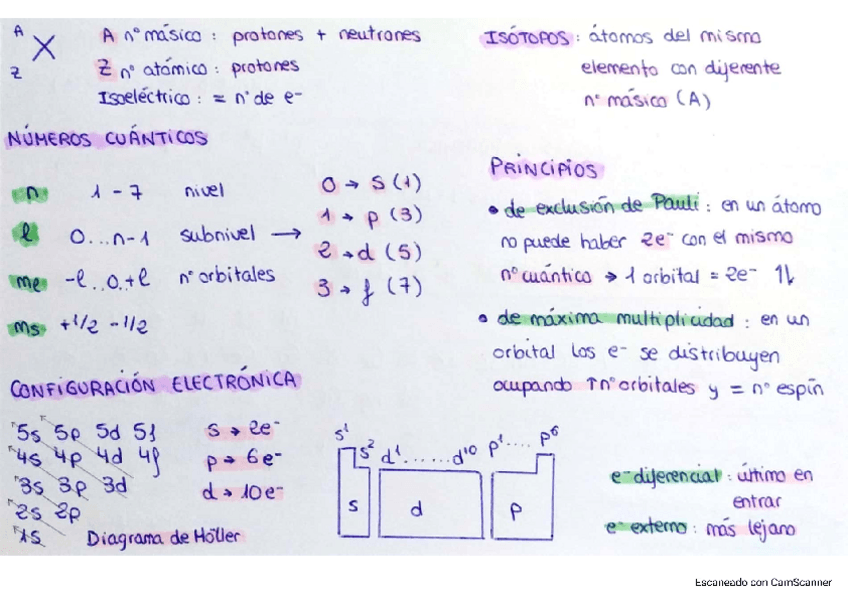 A
X
Z
A nº másico : protones + neutrones
Z nº atómico : protones
Isoeléctrico : = nº de e-
ISÓTOPOS : átomos del mismo
elemento con diferente
nº másico (A)
NÚMEROS CUÁNTICOS
n 1 - 7 nivel
l 0...n-1 subnivel →
me -l..0..+l nº orbitales
ms +1/2 -1/2
0 → s (1)
1 → p (3)
2 → d (5)
3 → f (7)
PRINCIPIOS
• de exclusión de Pauli : en un átomo
no puede haber 2e- con el mismo
nº cuántico → 1 orbital = 2e- 1⇂
• de máxima multiplicidad : en un
orbital los e- se distribuyen
ocupando ↑nº orbitales y = nº espín
CONFIGURACIÓN ELECTRÓNICA
5s 5p 5d 5f
4s 4p 4d 4f
3s 3p 3d
2s 2p
1s Diagrama de Höller
s → 2e-
p → 6e-
d → 10e-
s¹ s² d¹......d¹⁰ p¹.... p⁶
s d p
e- diferencial : último en
entrar
e- externo : más lejano
Escaneado con CamScanner